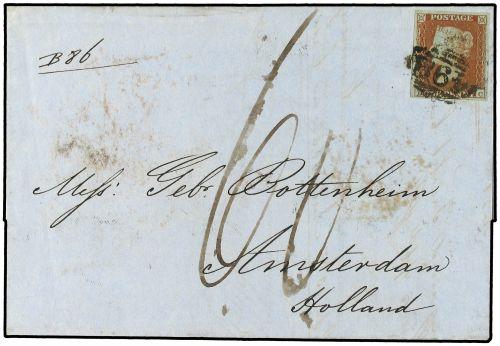 B86
POSTAGE
Mess: Gebr. Bottenheim
60
Amsterdam
Holland